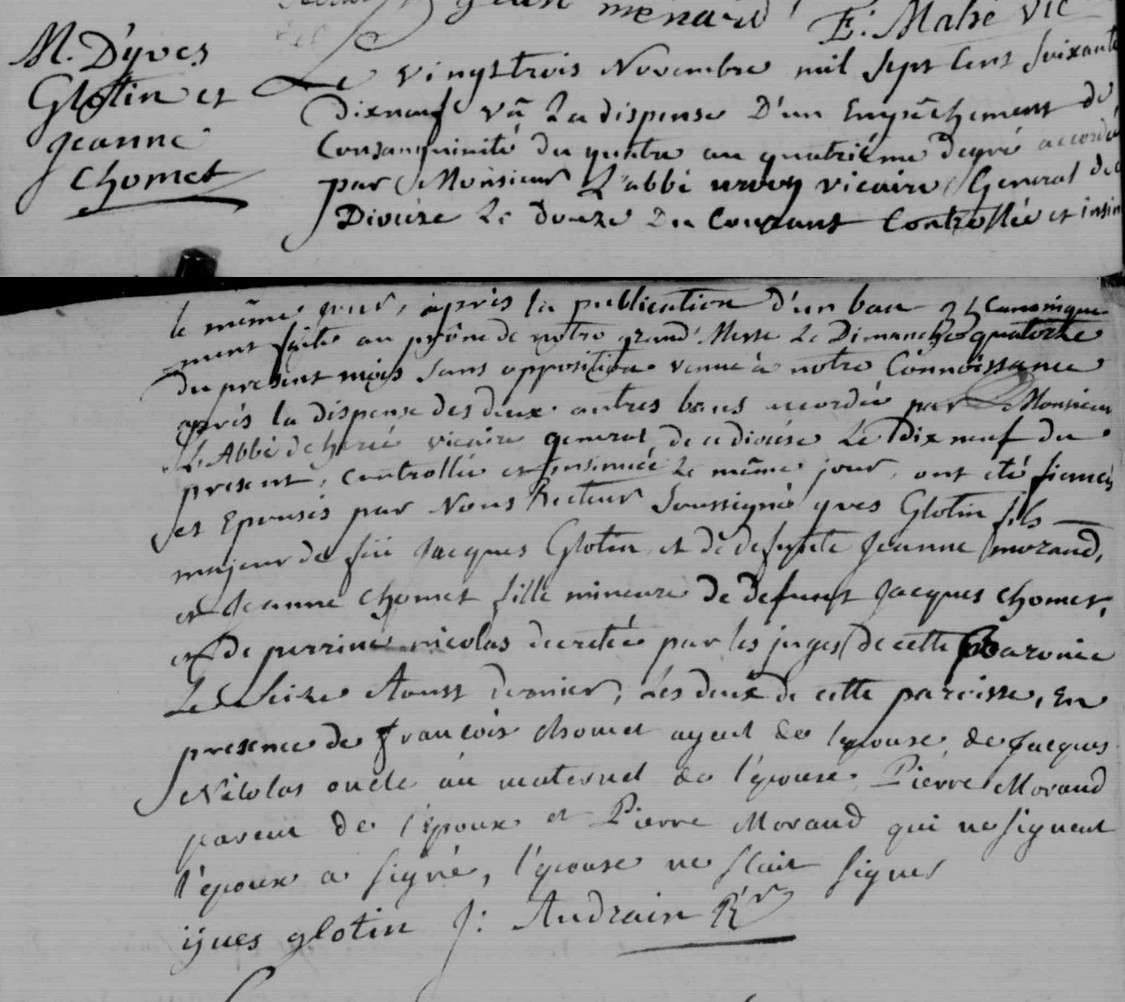 glise menard E: Mahé vic
M. D'yves
Glotin et
Jeanne
Chomet
Le vingttrois Novembre mil sept cent soixante
Dixneuf vû La dispense D'un Empêchement de
Consanguinité du quatre au quatriéme degré accordé
par Monsieur L'abbé urvoy vicaire General de
Diocèse Le douze Du Courant Controllée et insin
le même jour, après la publication d'un ban canonique
ment faite au prône de notre grand' Messe Le Dimanche quatorze
du present mois sans opposition venue à notre Connoissance
après la dispense des deux autres bans accordée par Monsieur
L'Abbé de vicaire general de ce diocése Le Dix neuf du
present, controllée et insinuée Le même jour, ont été fiancés
et Epousés par Nous Recteur Soussigné yves Glotin fils
majeur de feu Jacques Glotin et de defunte Jeanne morand,
et Jeanne Chomet fille mineure de defunt Jacques Chomet,
et de perrine nicolas decretée par les juges de cette Baronie
Le Seize Aoust dernier, Les deux de cette paroisse, En
presence de francois chomet ayeul de l'epouse, de Jacques
Nicolas oncle au maternel de l'epouse, Pierre Morand
parent de l'Epoux et Pierre Morand qui ne signent
l'epoux a signé, l'epouse ne scait signer
ÿves glotin J: Audrain Rr